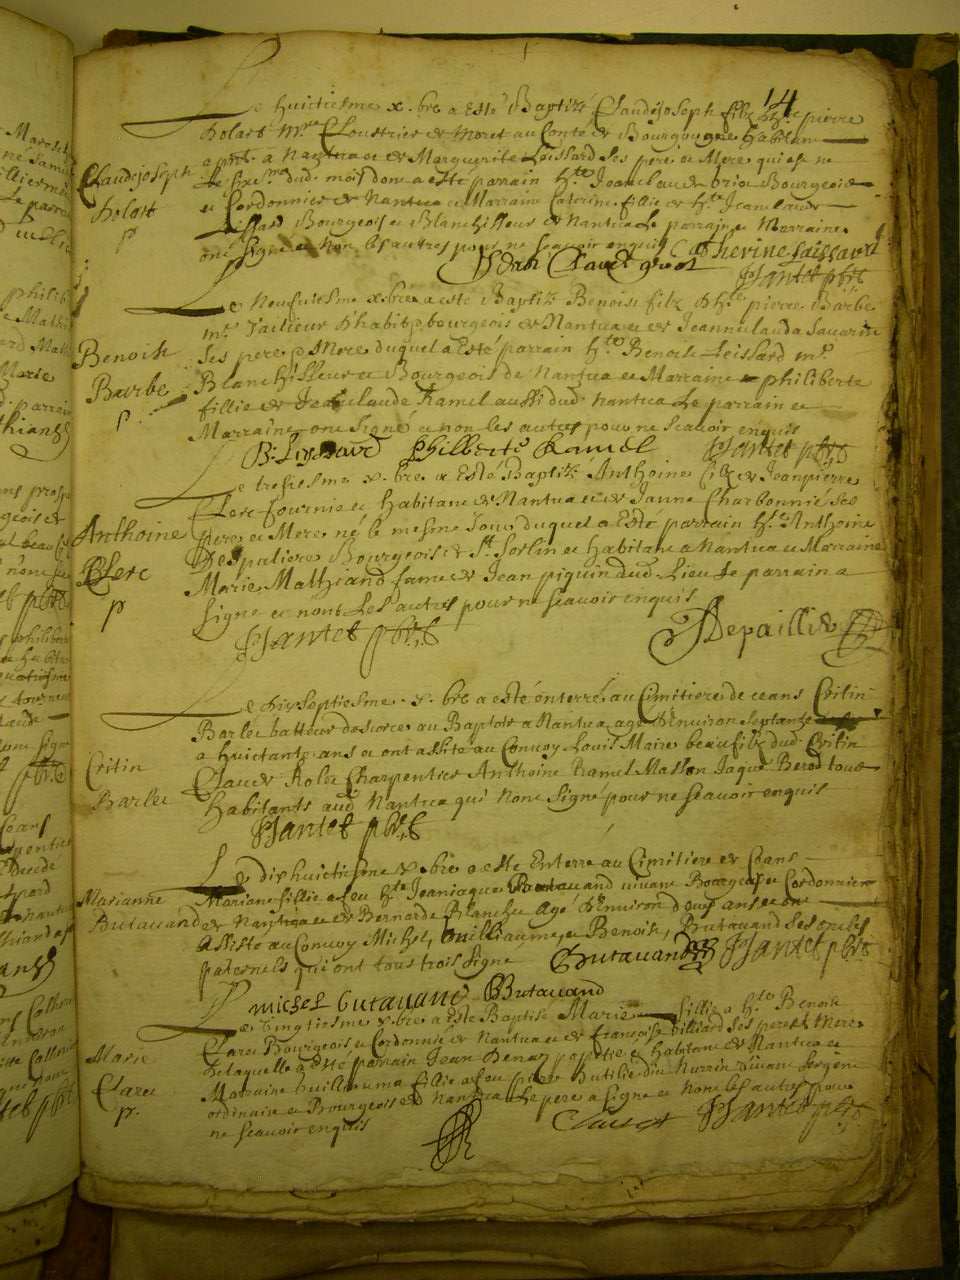 14
Le huictiesme x.bre a Esté Baptizé Claudejoseph filz d'h.te pierre
holart M.re Cloustrier de Moret au Conté de Bourgougne Habitan
a Nantua et de Marguerite Leissard ses pere et Mere qui est ne
Le sixe.me dud. mois dont a esté parrain h.te Jeanclaude brix Bourgeois
et Cordonnier de Nantua et Marraine Caterine fillie de h.te Jeanclaude
Bourgeois et Blanchisseur de Nantua Le parrain et Marraine
ont signe et non les autres pour ne scavoir enquis Catherine laissard
Jantet pbre
Claudejoseph
holart
p
Le Neufuiesme x.bre a esté Baptizé Benoist filz d'h.te pierre Barbe
m.re Tailieur d'habit bourgeois de Nantua et de Jeanneclauda Savarin
Ses pere et Mere duquel a Esté parrain h.te Benoist Leissard m.re
Blanchisseur et Bourgeois de Nantua et Marraine philiberte
fillie de Jeanclaude Ramel aussi dud. Nantua Le parrain et
Marraine ont signé et non les autres pour ne scavoir enquis
B. Leyssard Philberte Ramel Jantet pbre
Benoist
Barbe
p
Le tresiesme x.bre a Esté Baptizé Anthoine filz de Jeanpierre
Clerc fournie et habitant de Nantua et de Janne Charbonnié ses
pere et Mere né le mesme Jour duquel a Esté parrain h.te Anthoine
Despaliere Bourgeois de St Sorlin et habitant a Nantua et Marraine
Marie Mathiand fame de Jean piquin dud. Lieu Le parrain a
signe et nont Les autres pour ne scavoir enquis
Jantet pbre Depaillier
Anthoine
Clerc
p
Le dixseptiesme x.bre a esté enterré au Cimitiere de ceans Critin
Barlet batteur au Baptoir a Nantua, agé d'Environ septante
a huictante ans et ont assité au Convoy Louis Maire beaufilz dud. Critin
Claude Rolet Charpentier Anthoine Ramel Masson Jaque Berod tous
Habitants aud. Nantua qui nont signé pour ne scavoir enquis
Jantet pbre
Critin
Barlet
Le dixhuictiesme x.bre a esté Enterré au Cimitiere de Ceans
Mariane fillie a feu h.te Jeanjaque Butavand vivant Bourgeois et Cordonnier
de Nantua et de Bernarde Blanchet Agé d'Environ d'euf ans et ont
Assisté au Convoy Michel, Guilliaume, et Benoist, Butavand ses oncles
paternels qui ont tous trois signe Butavand Jantet pbre
michel Butavand Butavand
Marianne
Butavand
Le Vingtiesme x.bre a Esté Baptisé Marie fillie a h.te Benoist
Claret Bourgeois et Cordonnie de Nantua et de françoise Villiard ses pere et Mere
de laquelle a esté parrain Jean Benoz et habitant de Nantua et
Marraine Guillerma fillie a feu
ordinaire et Bourgeois de Nantua Le pere a signe et non les autres pour
ne scavoir enquis Claret Jantet pbre
Marie
Claret
p.